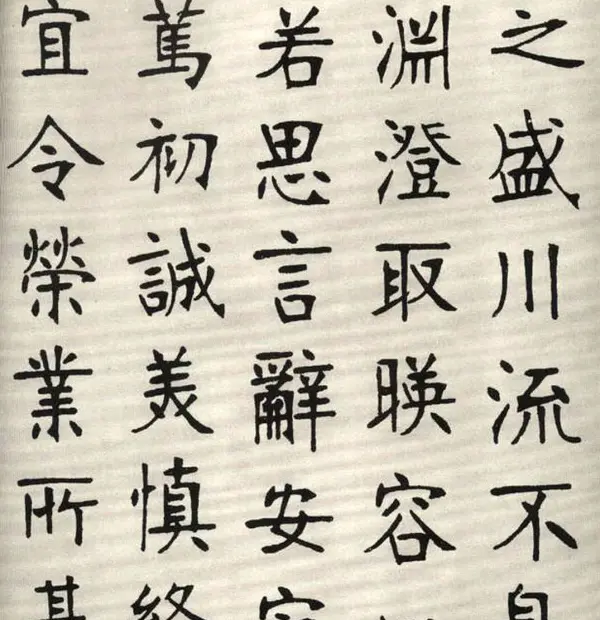 之盛川流不息
淵澄取暎容
若思言辭安定
篤初誠美慎終
宜令榮業所基